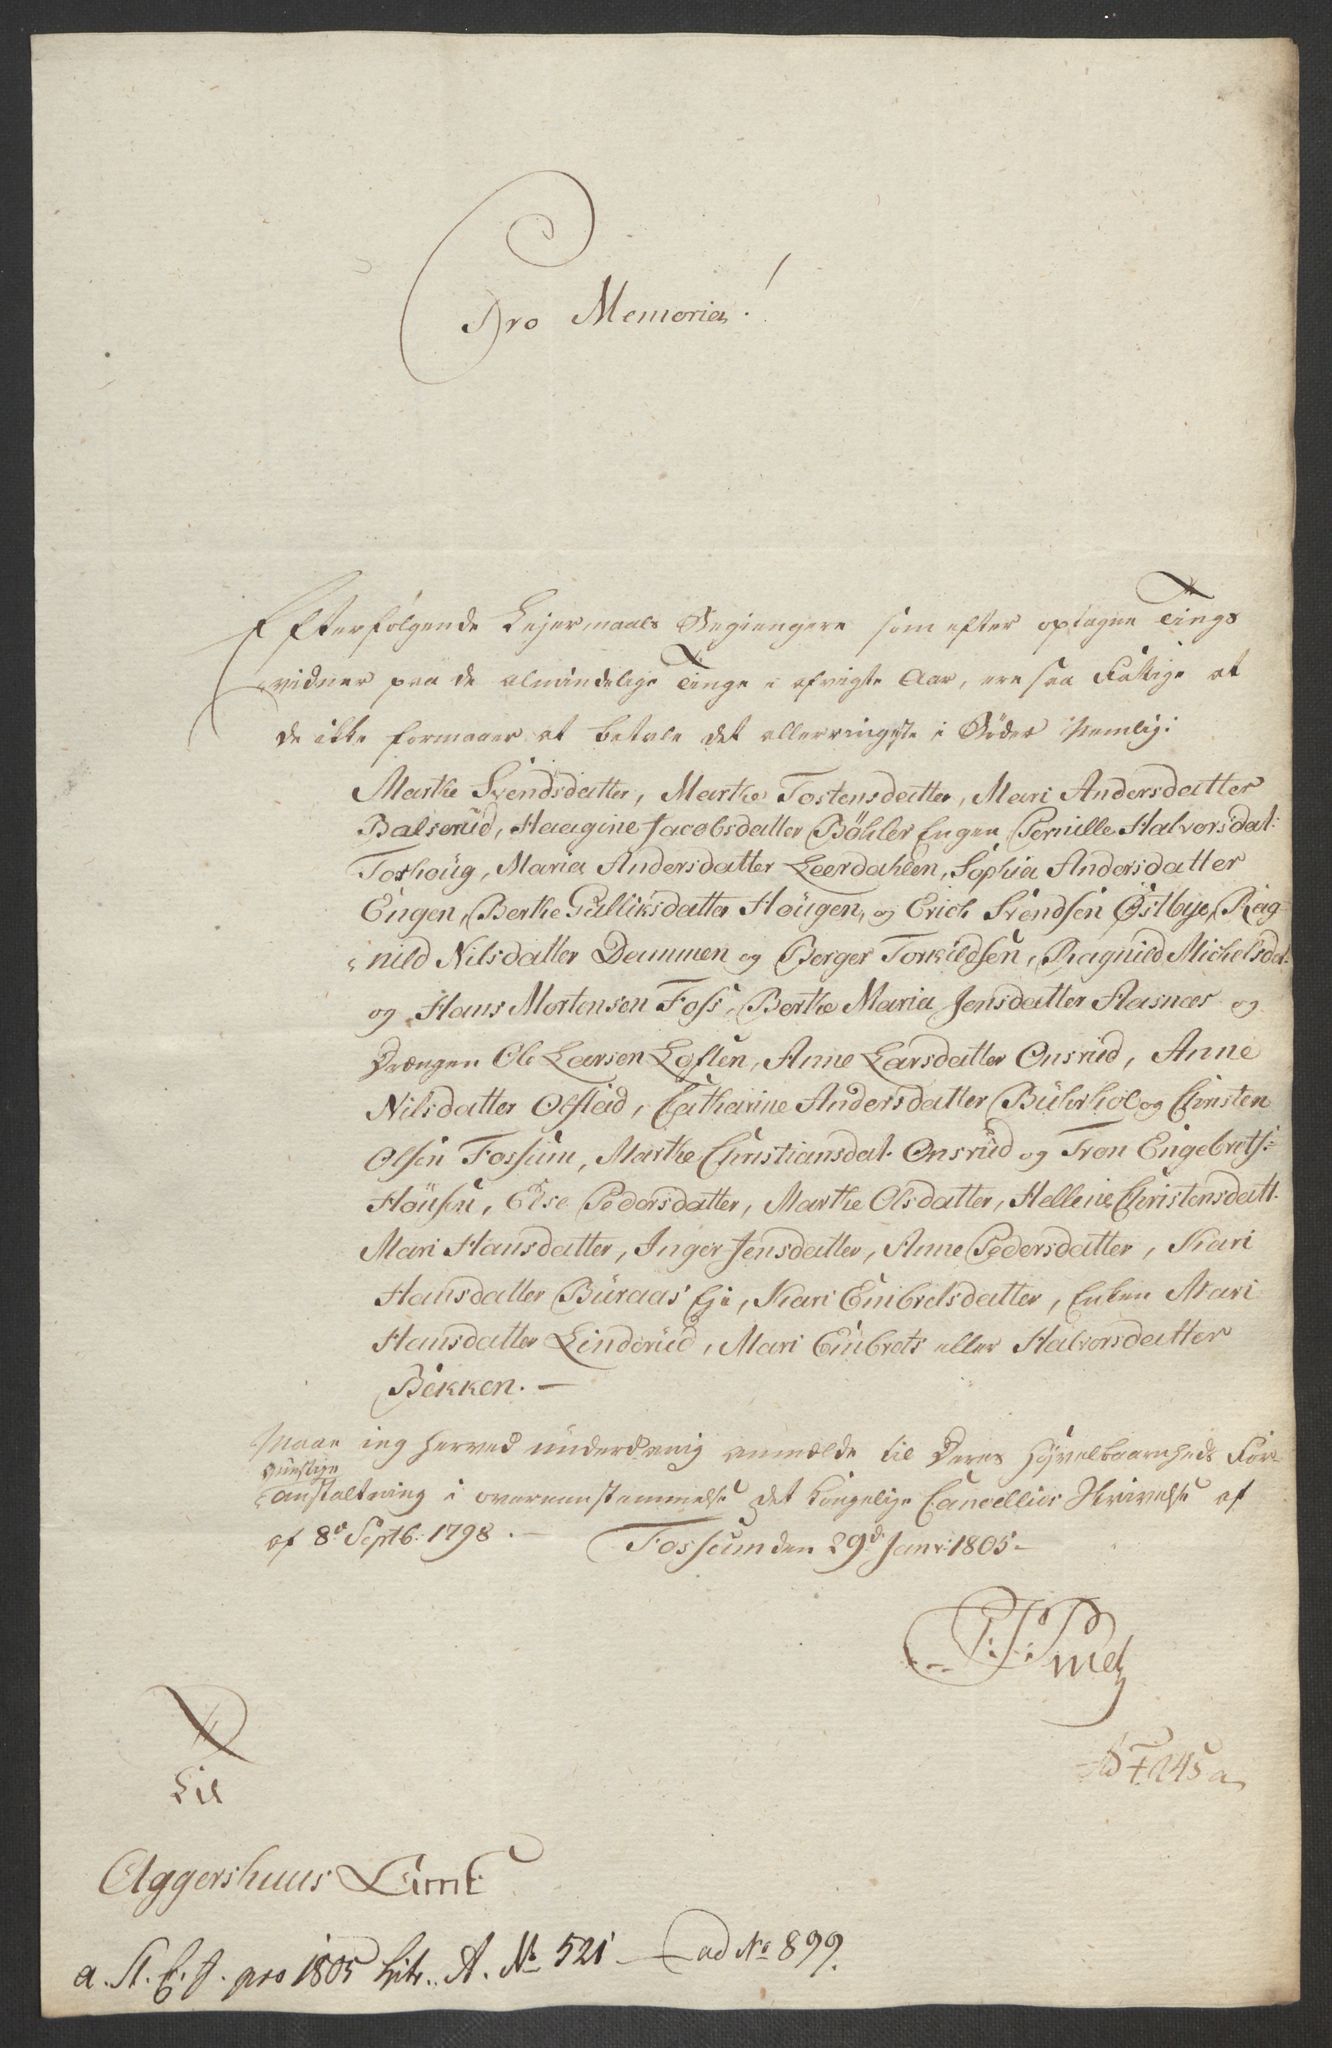 Pro Memoria!
Efterfølgende Lejermaals Begiengere som efter optagne Tings
vidner paa de almindelige Tinge i afvigte Aar, ere saa Fattige at
de ikke formaaer at betale det allerringeste i Bøder Nemlig:
Marthe Svendsdatter, Marthe Tostensdatter, Mari Andersdatter
Balserud, Haagine Jacobsdatter Böhler Engen Pernille Halvorsdat:
Toshoug, Maria Andersdatter Leerdahlen, Sophia Andersdatter
Engen, Berthe Gulliksdatter Hougen, og Erich Svendsen Østbye, Rag-
nild Nilsdatter Dammen og Berger Torkildsen, Ragnild Michelsdat:
og Hans Mortensen Foss, Berthe Maria Jensdatter Aasnæs og
Drængen Ole Larsen Løften, Anne Larsdatter Onsrud, Anne
Nilsdatter Ofstad, Catharine Andersdatter Buhrhol og Christen
Olsen Fossum, Marthe Christiansdat. Onsrud og Tron Engebrets:
Housen, Else Pedersdatter, Marthe Olsdatter, Hellene Christensdatt.
Mari Hansdatter, Inger Jensdatter, Anne Pedersdatter, Kari
Hansdatter Buraas Eje, Kari Embretsdatter, Enken Mari
Hansdatter Linderud, Mari Embrets eller Halvorsdatter
Bekken. —
Maae ieg herved underdanig anmælde til Deres Høyvelbaarnheds For-
gunstige
anstaltning i overeenstemmelse det kongelige Cancellies Skrivelse af
af 8de Septb: 1798. — Fossum den 29d Janr: 1805 —
Til
Ad F. 245 a
Aggershuus Amt
a. St. C. J. pro 1805 Litr. A. No 521 — ad No 899.